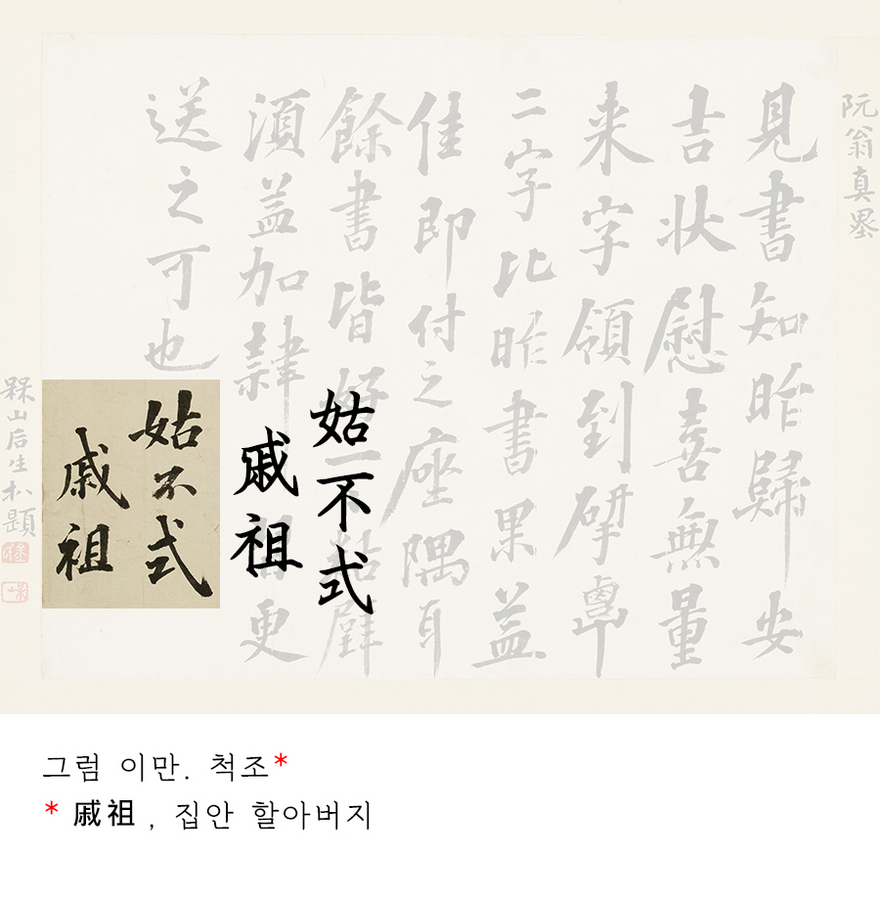 阮翁真墨
見書知昨歸安
吉状慰喜無量
来字領到
二字比昨書果益
佳即付之座隅耳
餘書皆
須益加隷 更
送之可也
姑不式
戚祖
姑不式
戚祖
山后生 題
그럼 이만. 척조*
* 戚祖 , 집안 할아버지